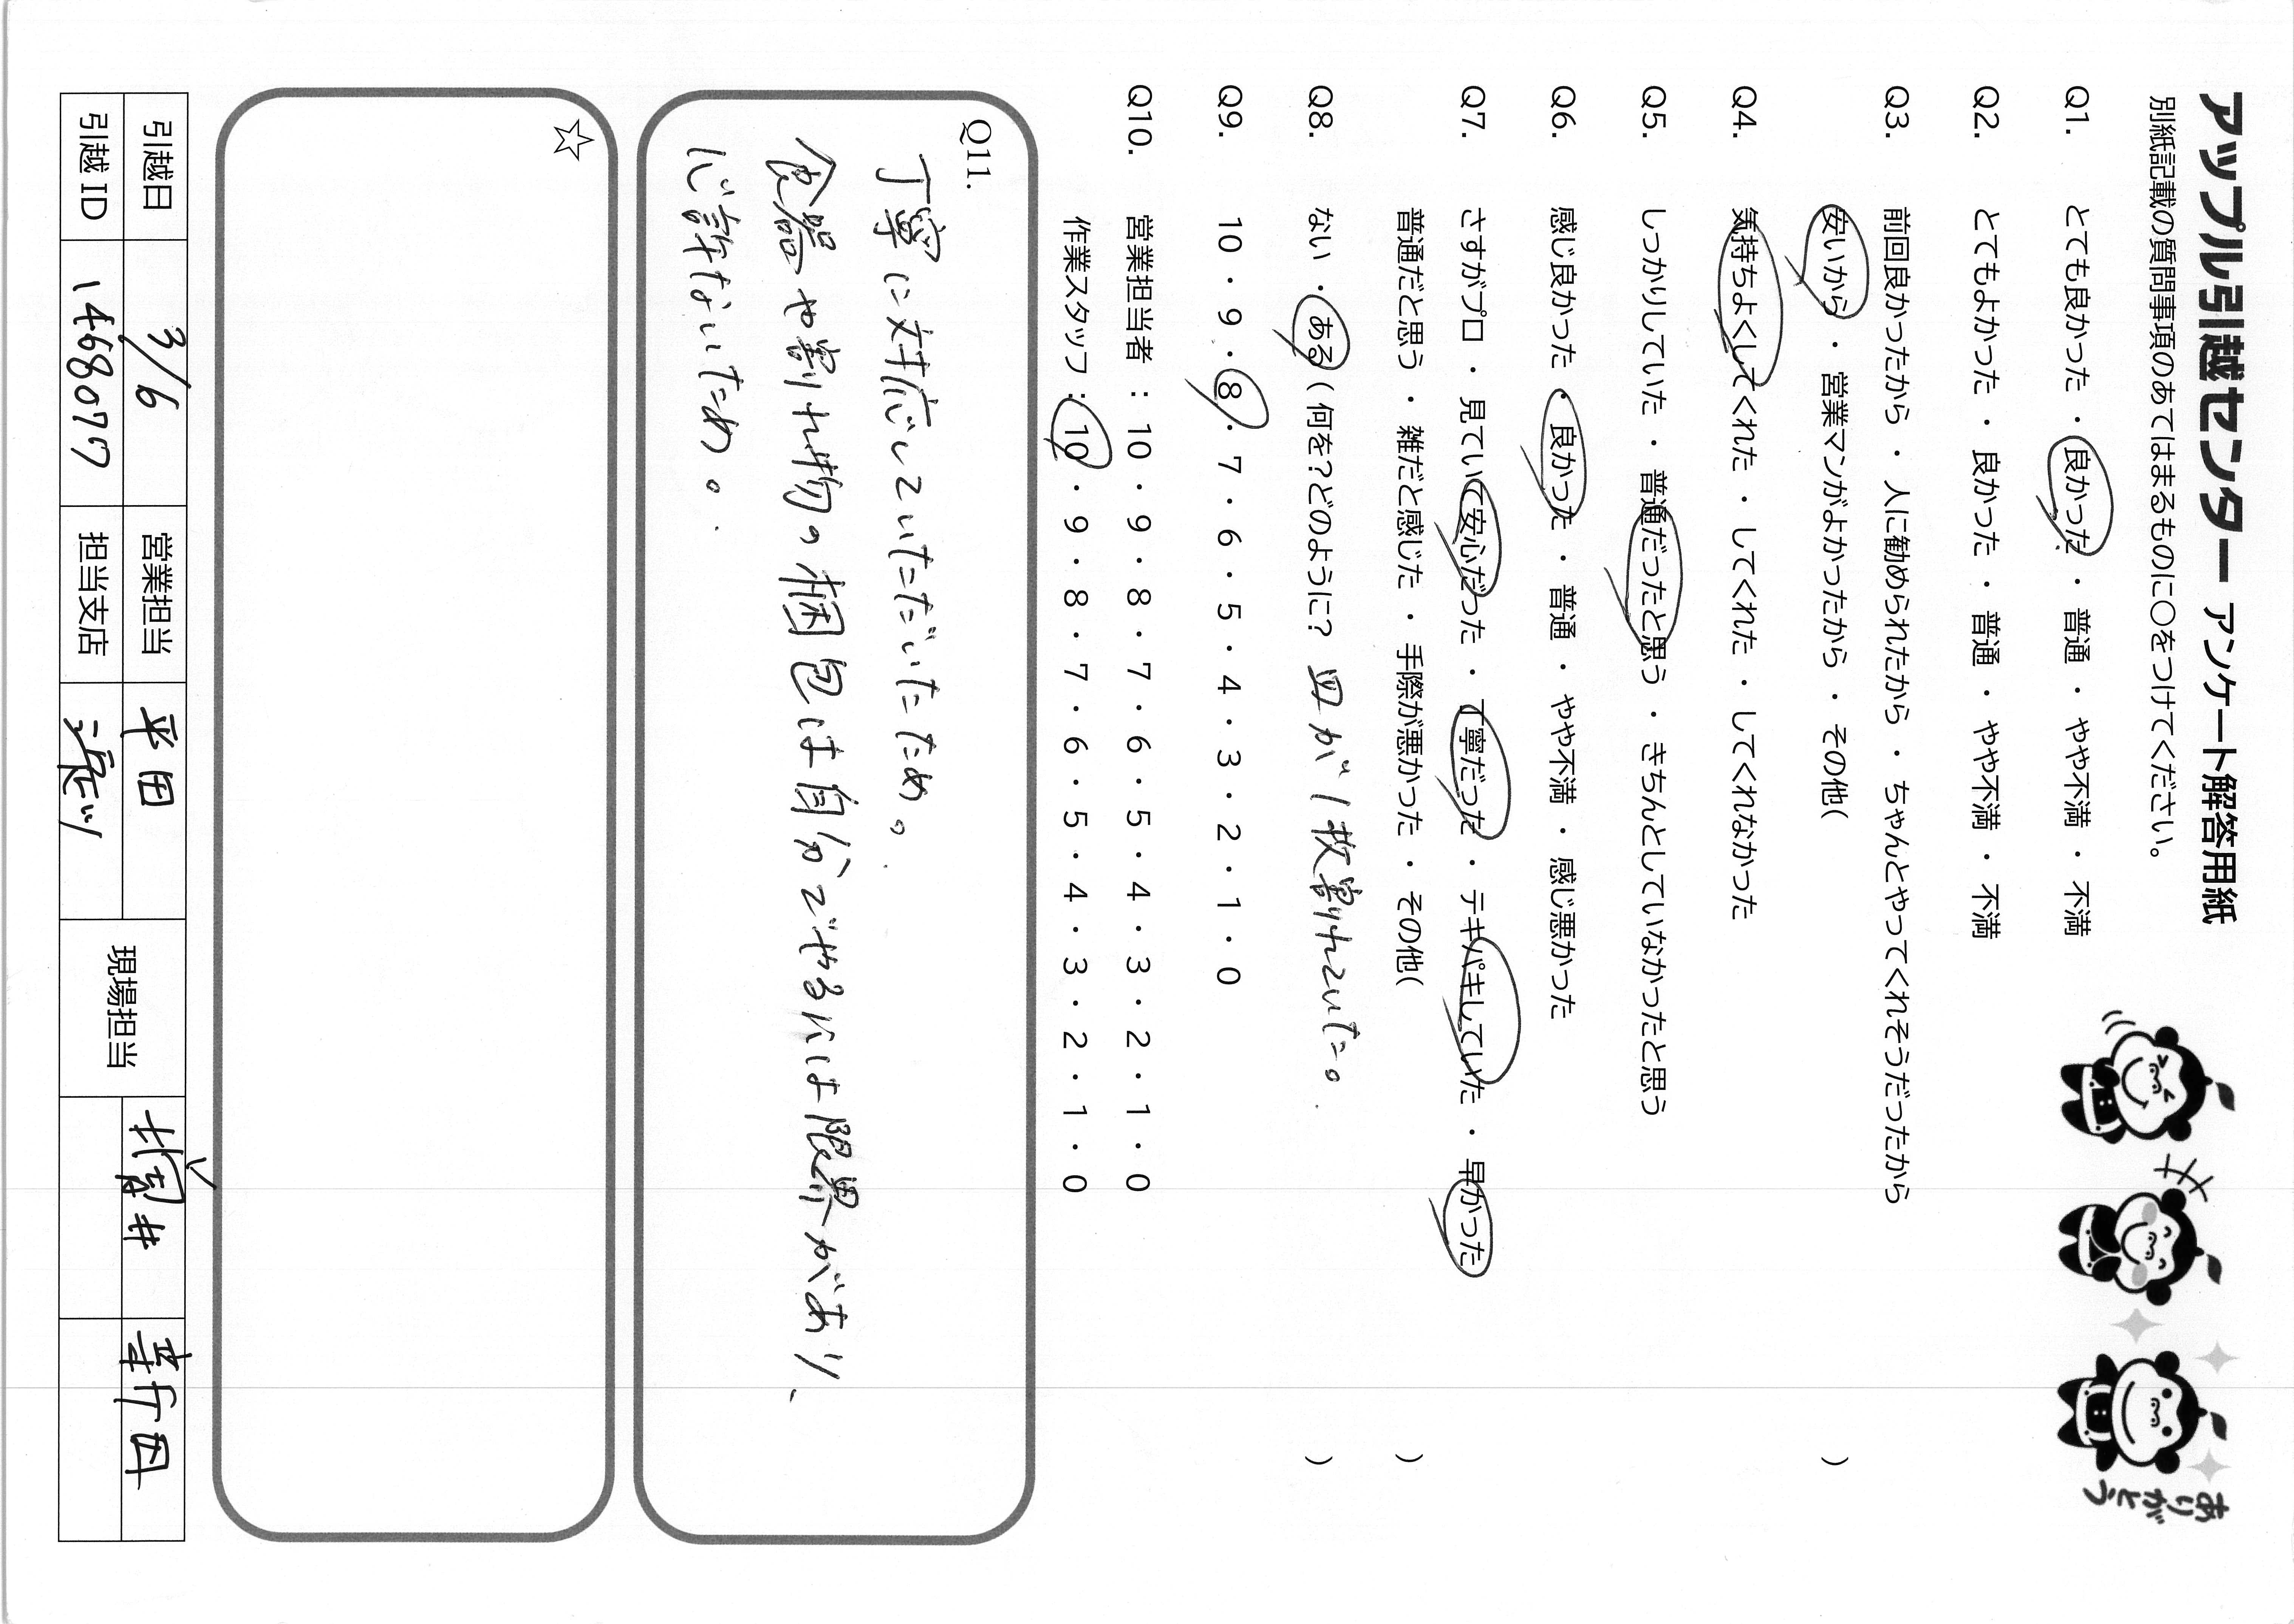 アップル引越センター アンケート解答用紙
別紙記載の質問事項のあてはまるものに○をつけてください。
Q1. とても良かった ・ 良かった ・ 普通 ・ やや不満 ・ 不満
Q2. とてもよかった ・ 良かった ・ 普通 ・ やや不満 ・ 不満
Q3. 前回良かったから ・ 人に勧められたから ・ ちゃんとやってくれそうだったから
安いから ・ 営業マンがよかったから ・ その他( )
Q4. 気持ちよくしてくれた ・ してくれた ・ してくれなかった
Q5. しっかりしていた ・ 普通だったと思う ・ きちんとしていなかったと思う
Q6. 感じ良かった ・ 良かった ・ 普通 ・ やや不満 ・ 感じ悪かった
Q7. さすがプロ ・ 見ていて安心だった ・ 丁寧だった ・ テキパキしていた ・ 早かった
普通だと思う ・ 雑だと感じた ・ 手際が悪かった ・ その他( )
Q8. ない ・ ある ( 何を?どのように? 皿が1枚割れていた。 )
Q9. 10 ・ 9 ・ 8 ・ 7 ・ 6 ・ 5 ・ 4 ・ 3 ・ 2 ・ 1 ・ 0
Q10. 営業担当者 : 10 ・ 9 ・ 8 ・ 7 ・ 6 ・ 5 ・ 4 ・ 3 ・ 2 ・ 1 ・ 0
作業スタッフ : 10 ・ 9 ・ 8 ・ 7 ・ 6 ・ 5 ・ 4 ・ 3 ・ 2 ・ 1 ・ 0
Q11.
丁寧に対応していただいたため。
食器や割れ物の梱包は自分でやるには限界があり、
心許ないため。
☆
引越日 3/6 営業担当 平田 現場担当 井 新田
引越ID 1468077 担当支店
ありがとう